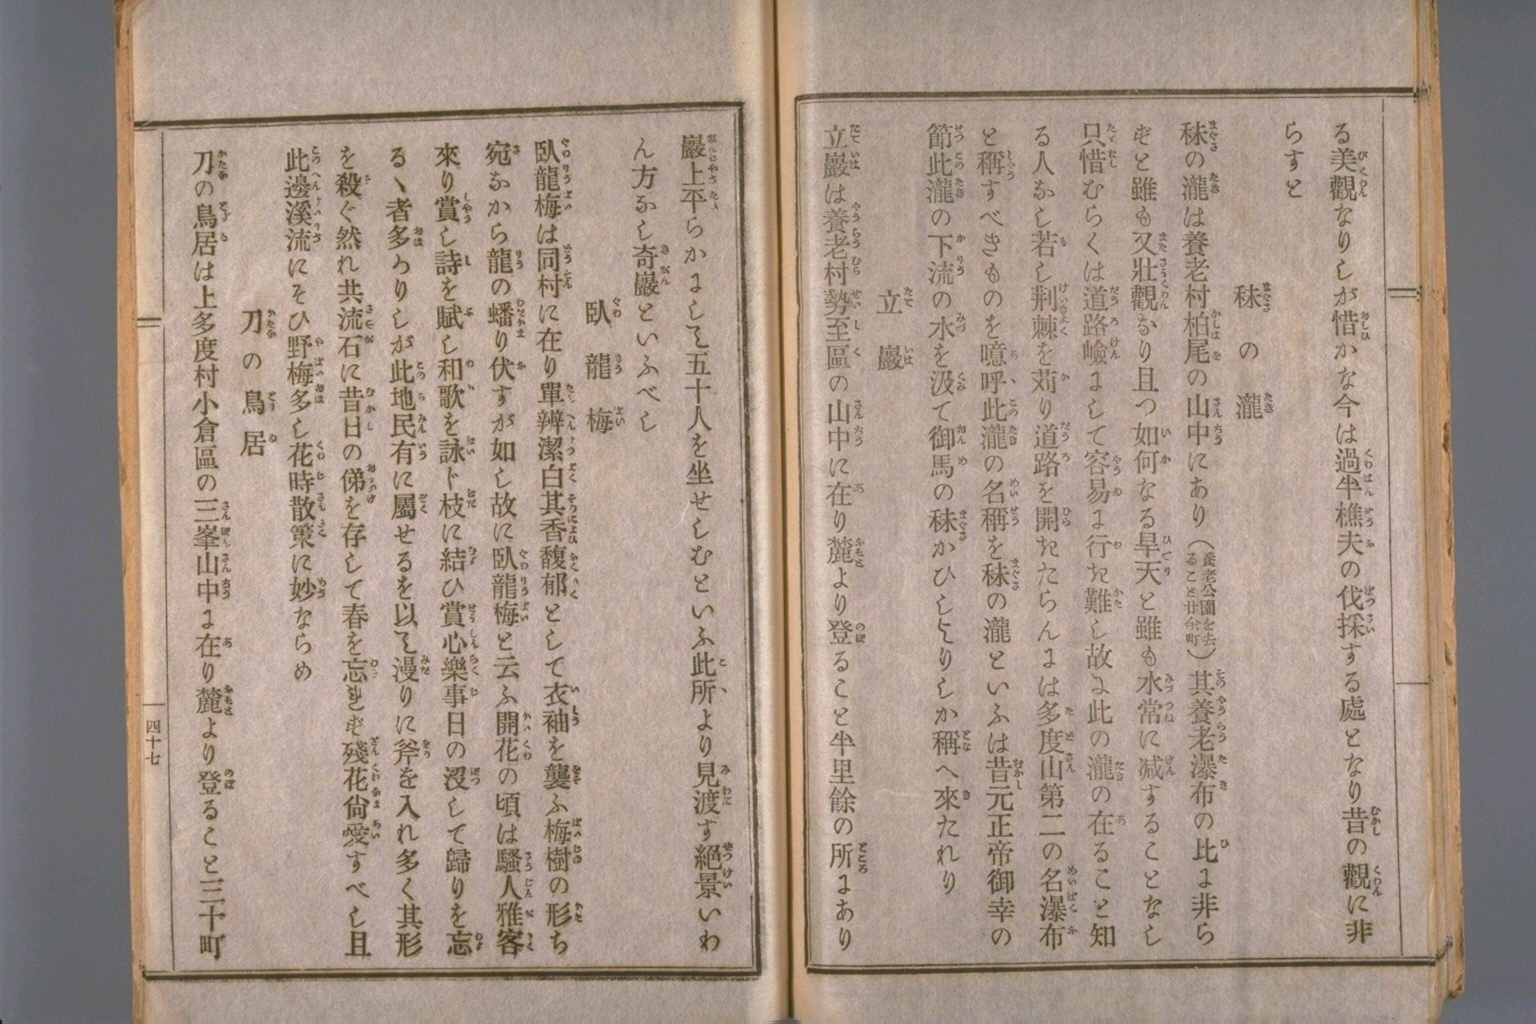 る美觀なりしが惜かな今は過半樵夫の伐採する處となり昔の觀に非
らすと
秣の瀧
秣の瀧は養老村柏尾の山中にあり(養老公園を去ること廿余町)其養老瀑布の比に非ら
ずと雖も又壯觀なり且つ如何なる旱天と雖も水常に减することなし
只惜むらくは道路嶮にして容易に行き難し故に此の瀧の在ること知
る人なし若し荆棘を苅り道路を開きたらんには多度山第二の名瀑布
と稱すべきものを噫呼此瀧の名稱を秣の瀧といふは昔元正帝御幸の
節此瀧の下流の水を汲て御馬の秣かひしよりしか稱へ來たれり
立巖
立巖は養老村勢至區の山中に在り麓より登ること半里餘の所にあり
巖上平らかにして五十人を坐せしむといふ此所より見渡す絕景いわ
ん方なし奇巖といふべし
臥龍梅
臥龍梅は同村に在り單辨潔白其香馥郁として衣袖を襲ふ梅樹の形ち
宛なから龍の蟠り伏すが如し故に臥龍梅と云ふ開花の頃は騷人雅客
來り賞し詩を賦し和歌を詠ト枝に結ひ賞心樂事日の沒して歸りを忘
るヽ者多かりしが此地民有に屬せるを以て漫りに斧を入れ多く其形
を殺ぐ然れ共流石に昔日の俤を存して春を忘れず殘花尙愛すべし且
此邊溪流にそひ野梅多し花時散策に妙ならめ
刀の鳥居
刀の鳥居は上多度村小倉區の三峯山中に在り麓より登ること三十町
四十七